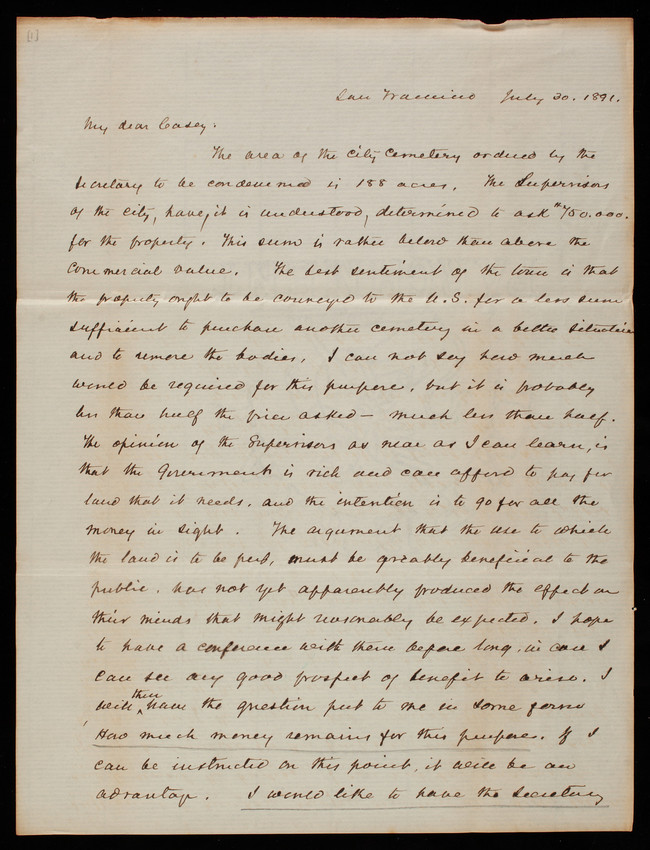 [1]
San Francisco July 30. 1891.
My dear Casey.
The area of the city cemetery ordered by the
Secretary to be condemned is 188 acres. The Supervisors
of the city, have, it is understood, determined to ask $750.000.
for the property. This sum is rather below than above the
commercial value. The best sentiment of the town is that
the property ought to be conveyed to the U.S. for a less sum
sufficient to purchase another cemetery in a better situation
and to remove the bodies. I can not say how much
would be required for this purpose, but it is probably
less than half the price asked — much less than half.
The opinion of the Supervisors as near as I can learn, is
that the Government is rich and can afford to pay for
land that it needs, and the intention is to go for all the
money in sight. The argument that the use to which
the land is to be put, must be greatly beneficial to the
public, has not yet apparently produced the effect on
their minds that might reasonably be expected. I hope
to have a conference with them before long, in case I
can see any good prospect of benefit to arise. I
will then have the question put to me in some form
How much money remains for this purpose. If I
can be instructed on this point, it will be an
advantage. I would like to have the Secretary